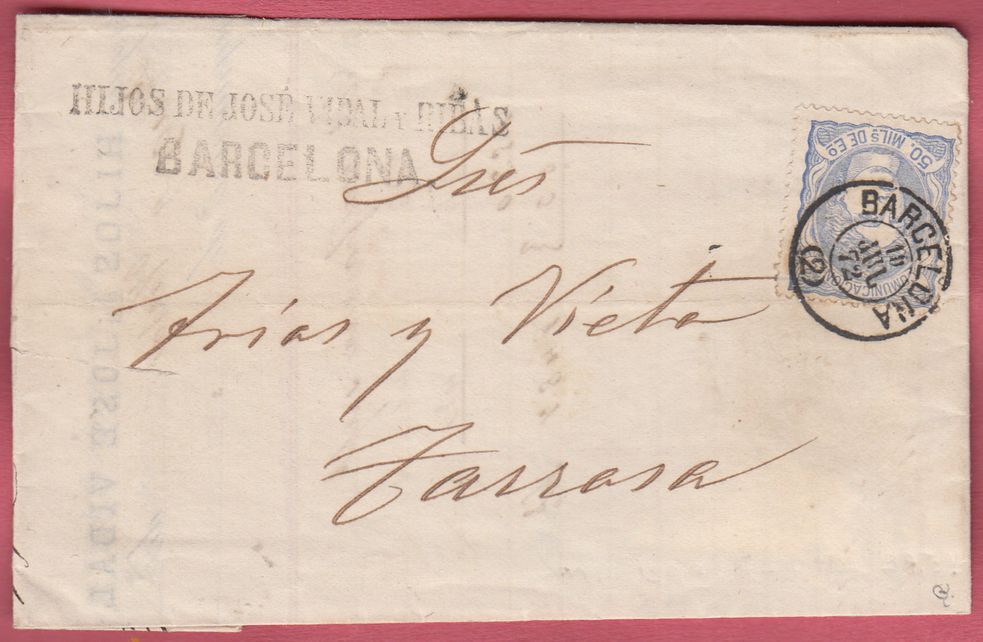 HIJOS DE JOSÉ VIDAL Y RIBAS
BARCELONA
Sres
Arias y Vieta
Tarrasa
50. MILS DE EO.
COMUNICACIO
BARCELONA
10
JUL
72
(2)